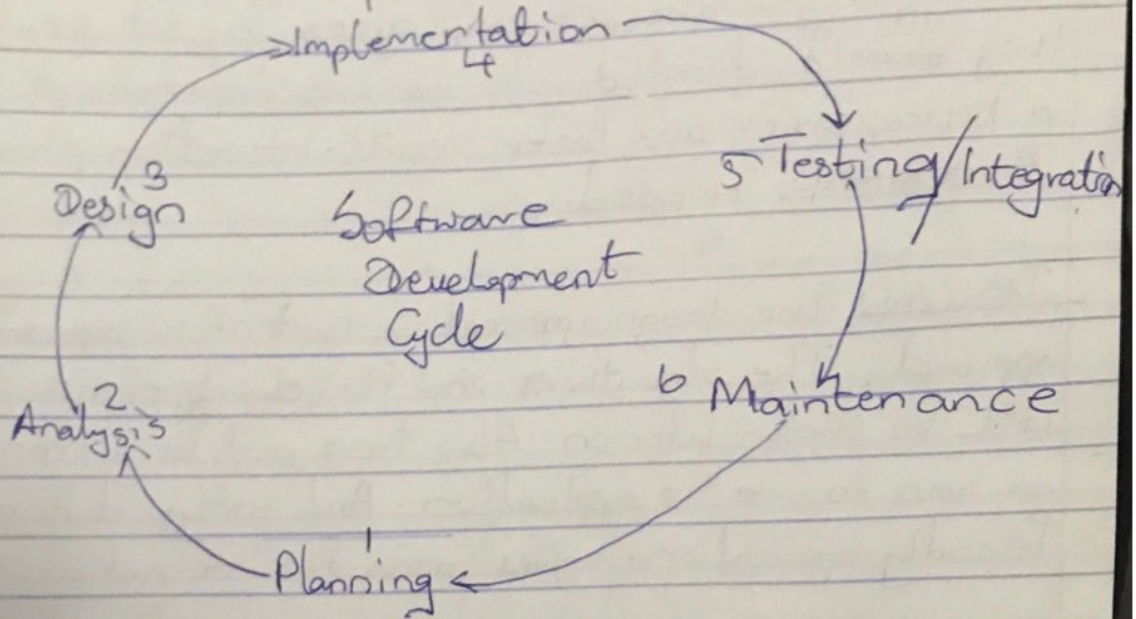 Implementation
4
5 Testing/Integration
3
Design
Software
Development
Cycle
6 Maintenance
2
Analysis
1
Planning